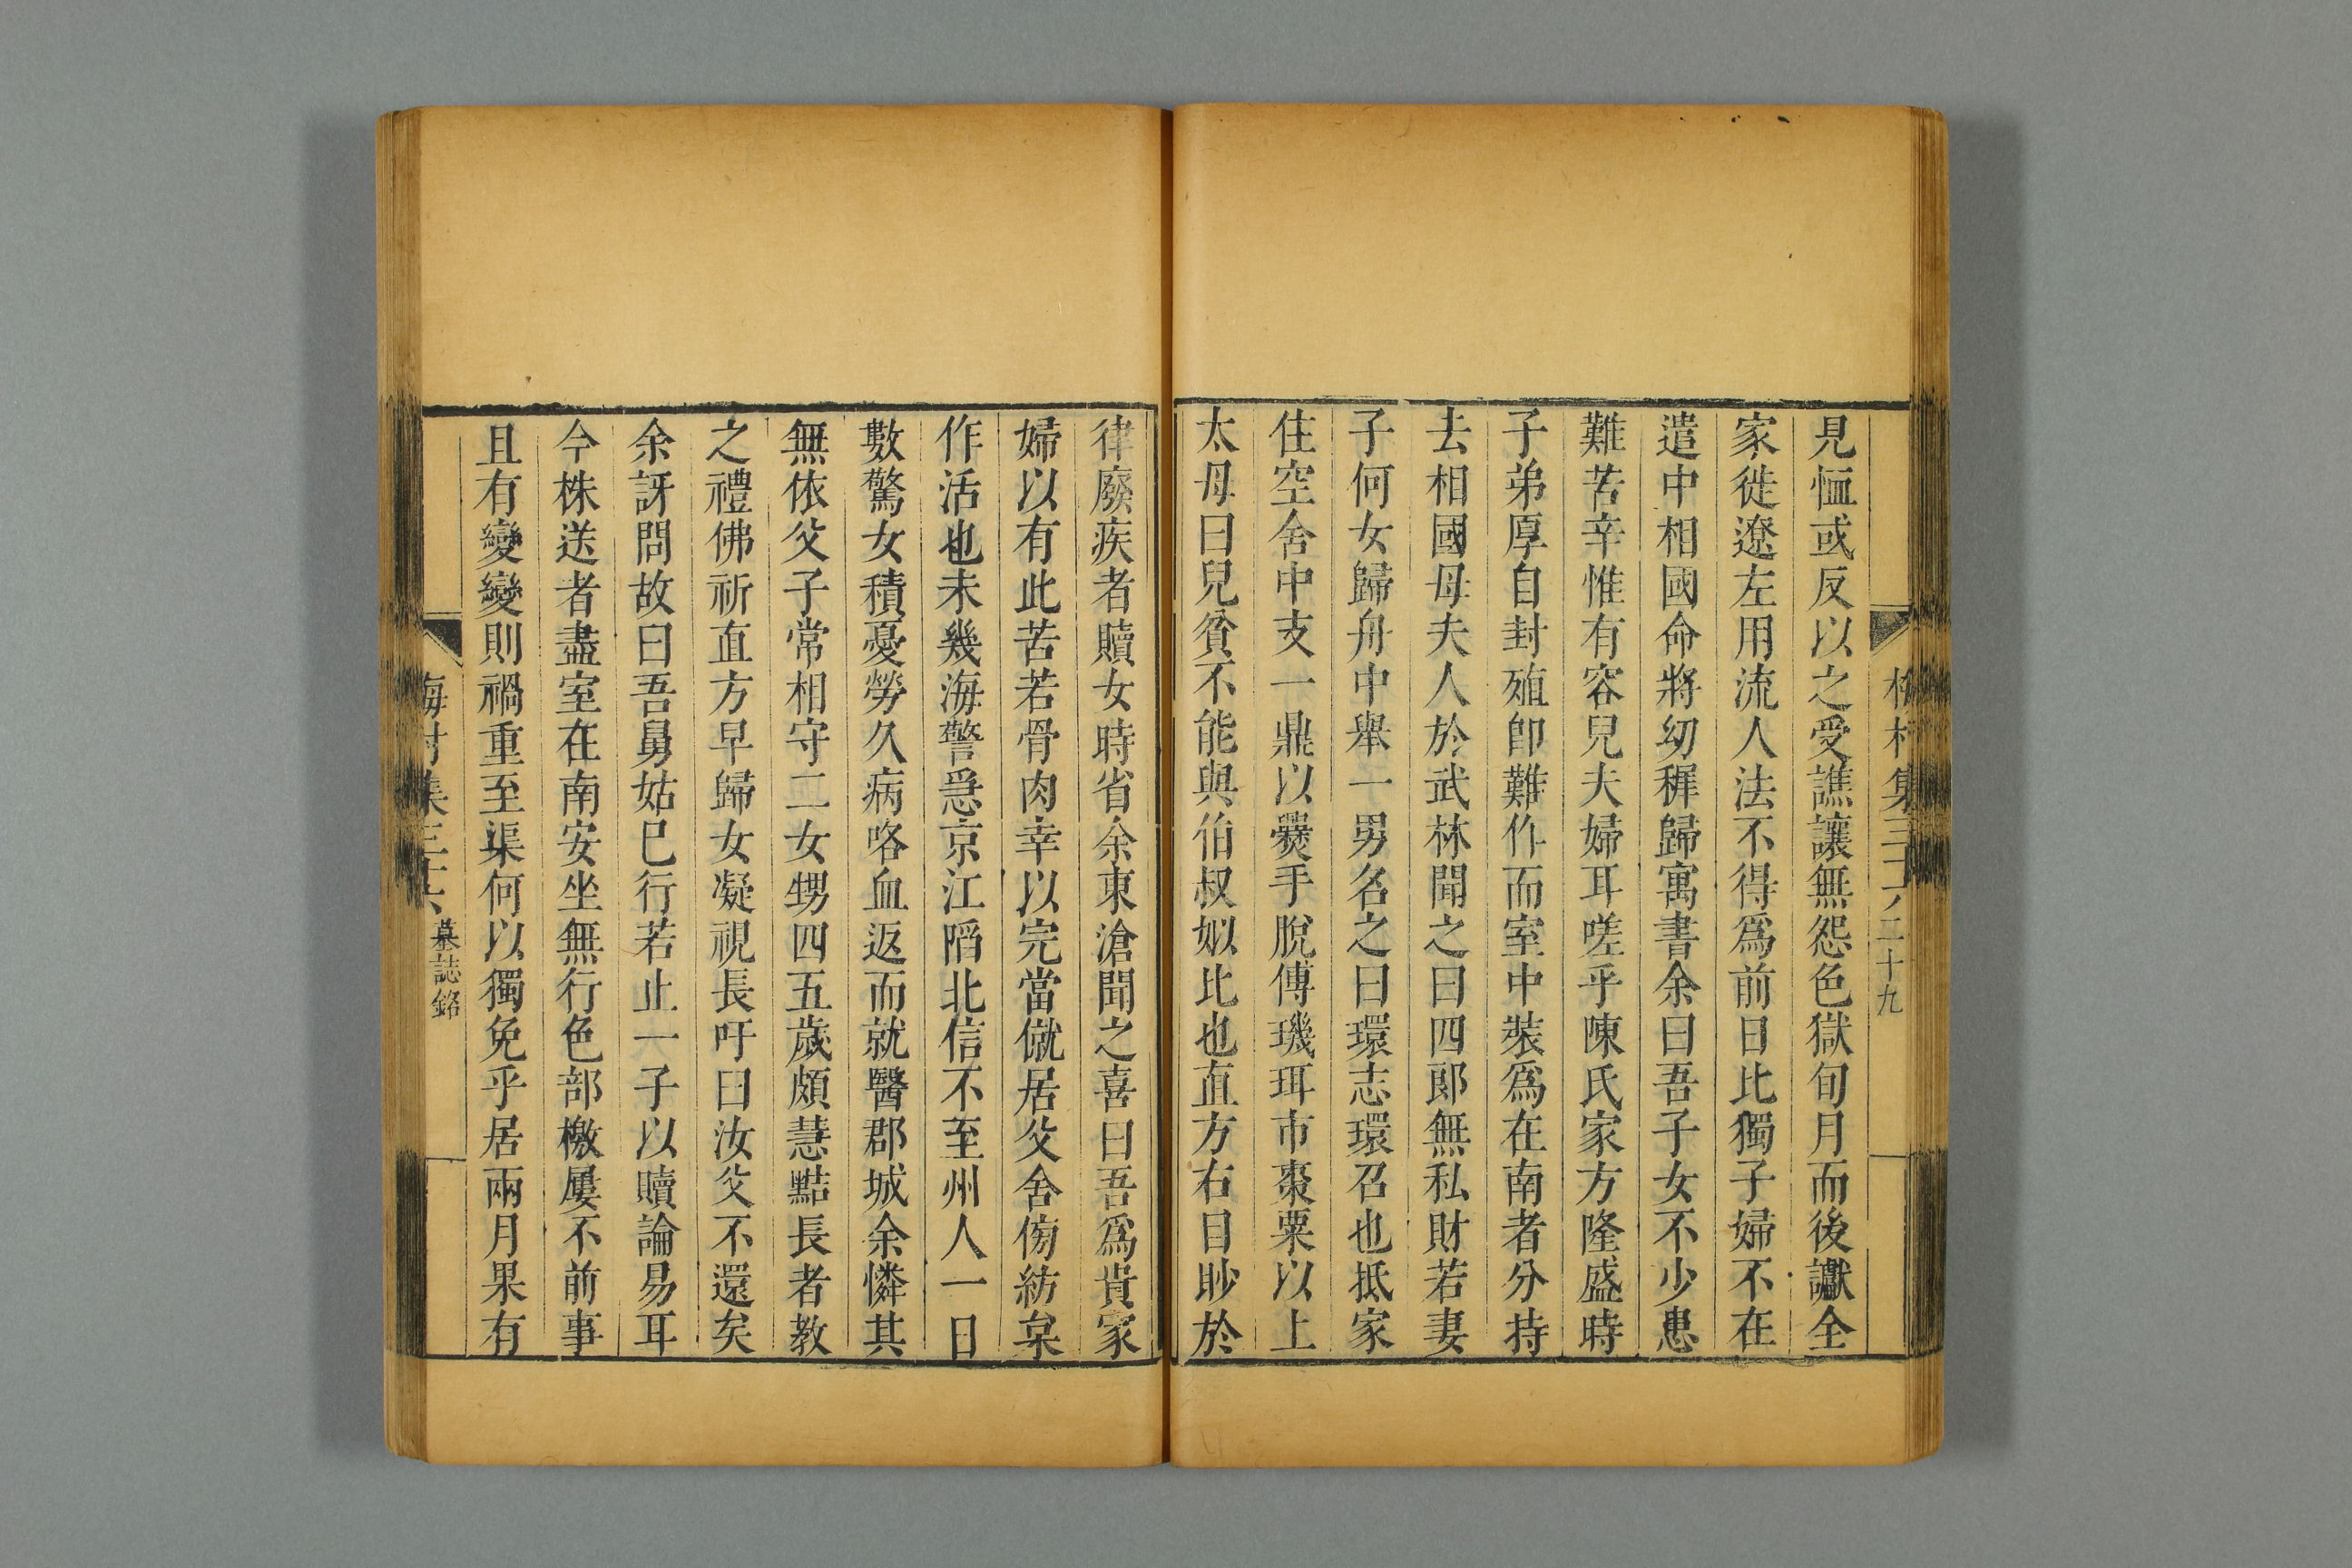 見恤或反以之受譙讓無怨色獄旬月而後讞全
家徙遼左用流人法不得爲前日比獨子婦不在
遣中相國命將幼穉歸寓書余曰吾子女不少患
難苦辛惟有容兒夫婦耳嗟乎陳氏家方隆盛時
子弟厚自封殖卽難作而室中裝爲在南者分持
去相國母夫人於武林聞之曰四郞無私財若妻
子何女歸舟中舉一男名之曰環志環召也抵家
住空舍中支一鼎以爨手脫傅璣珥市棗粟以上
太母曰兒貧不能與伯叔姒比也直方右目眇於
律廢疾者贖女時省余東滄聞之喜曰吾爲貴家
婦以有此苦若骨肉幸以完當僦居父舍傍紡枲
作活也未幾海警急京江陷北信不至州人一日
數驚女積憂勞久病咯血返而就醫郡城余憐其
無依父子常相守二女甥四五歲頗慧黠長者教
之禮佛祈直方早歸女凝視長吁曰汝父不還矣
余訝問故曰吾舅姑已行若止一子以贖論易耳
今株送者盡室在南安坐無行色部檄屢不前事
且有變變則禍重至渠何以獨免乎居兩月果有
村集三十六 二十九
梅村集三十六 墓誌銘